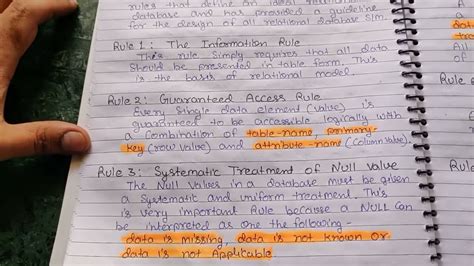 rules that define an ideal relational
database and has provided a guideline
for the design of all relational database s/m.
Rule 1 : The Information Rule
This rule simply requires that all data
should be presented in table form. This
is the basis of relational model.
Rule 2: Guaranteed Access Rule
Every single data element (value) is
guaranteed to be accessible logically with
a combination of table-name, primary-
key (row value) and attribute-name (column value).
Rule 3: Systematic Treatment of Null Value
The Null Values in a database must be given
a systematic and uniform treatment. This
is very important Rule because a NULL can
be interpreted as one the following-
data is missing, data is not known or
data is not applicable